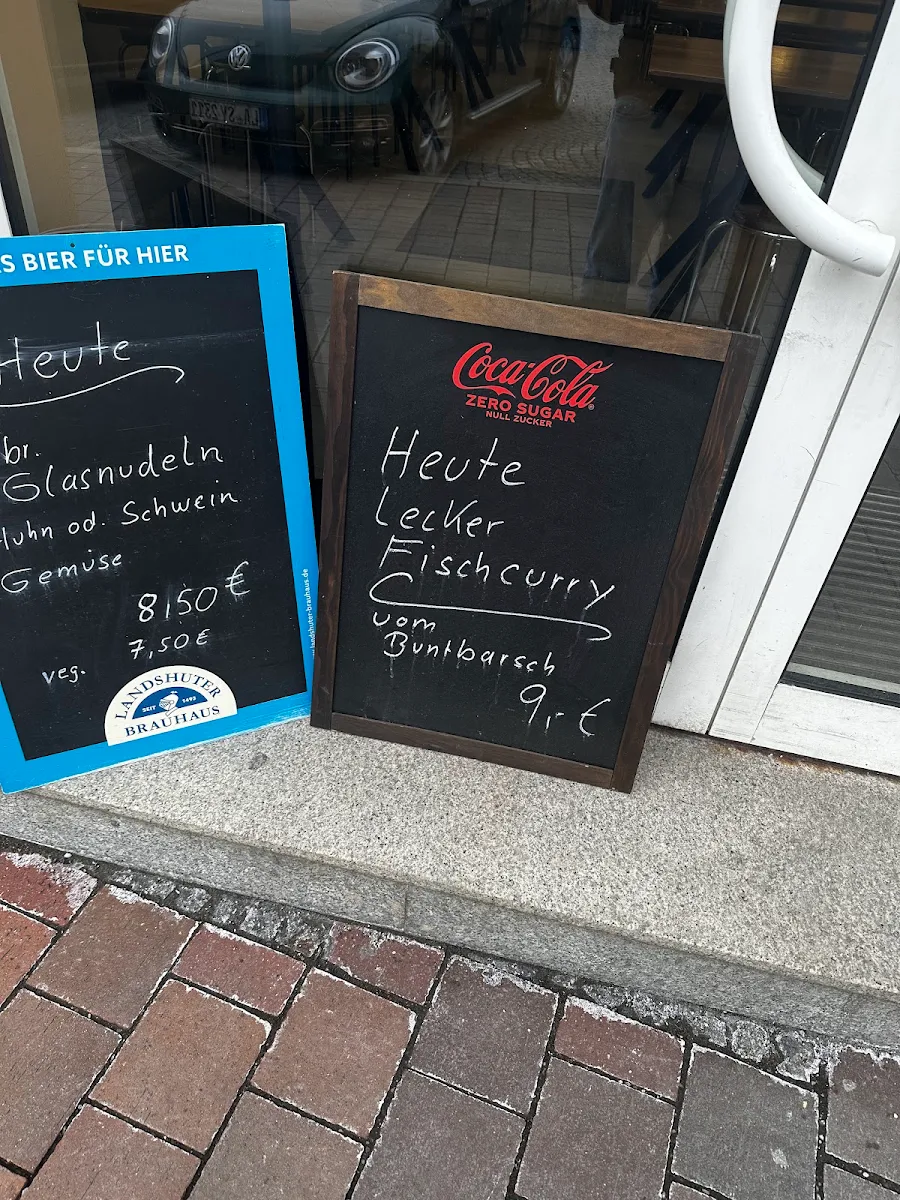 S BIER FÜR HIER
Heute
br.
Glasnudeln
Huhn od. Schwein
Gemüse
8,50 €
7,50 €
veg.
LANDSHUTER
SEIT 1493
BRAUHAUS
landshuter-brauhaus.de
Coca-Cola
ZERO SUGAR
NULL ZUCKER
Heute
Lecker
Fischcurry
vom
Buntbarsch
9,- €